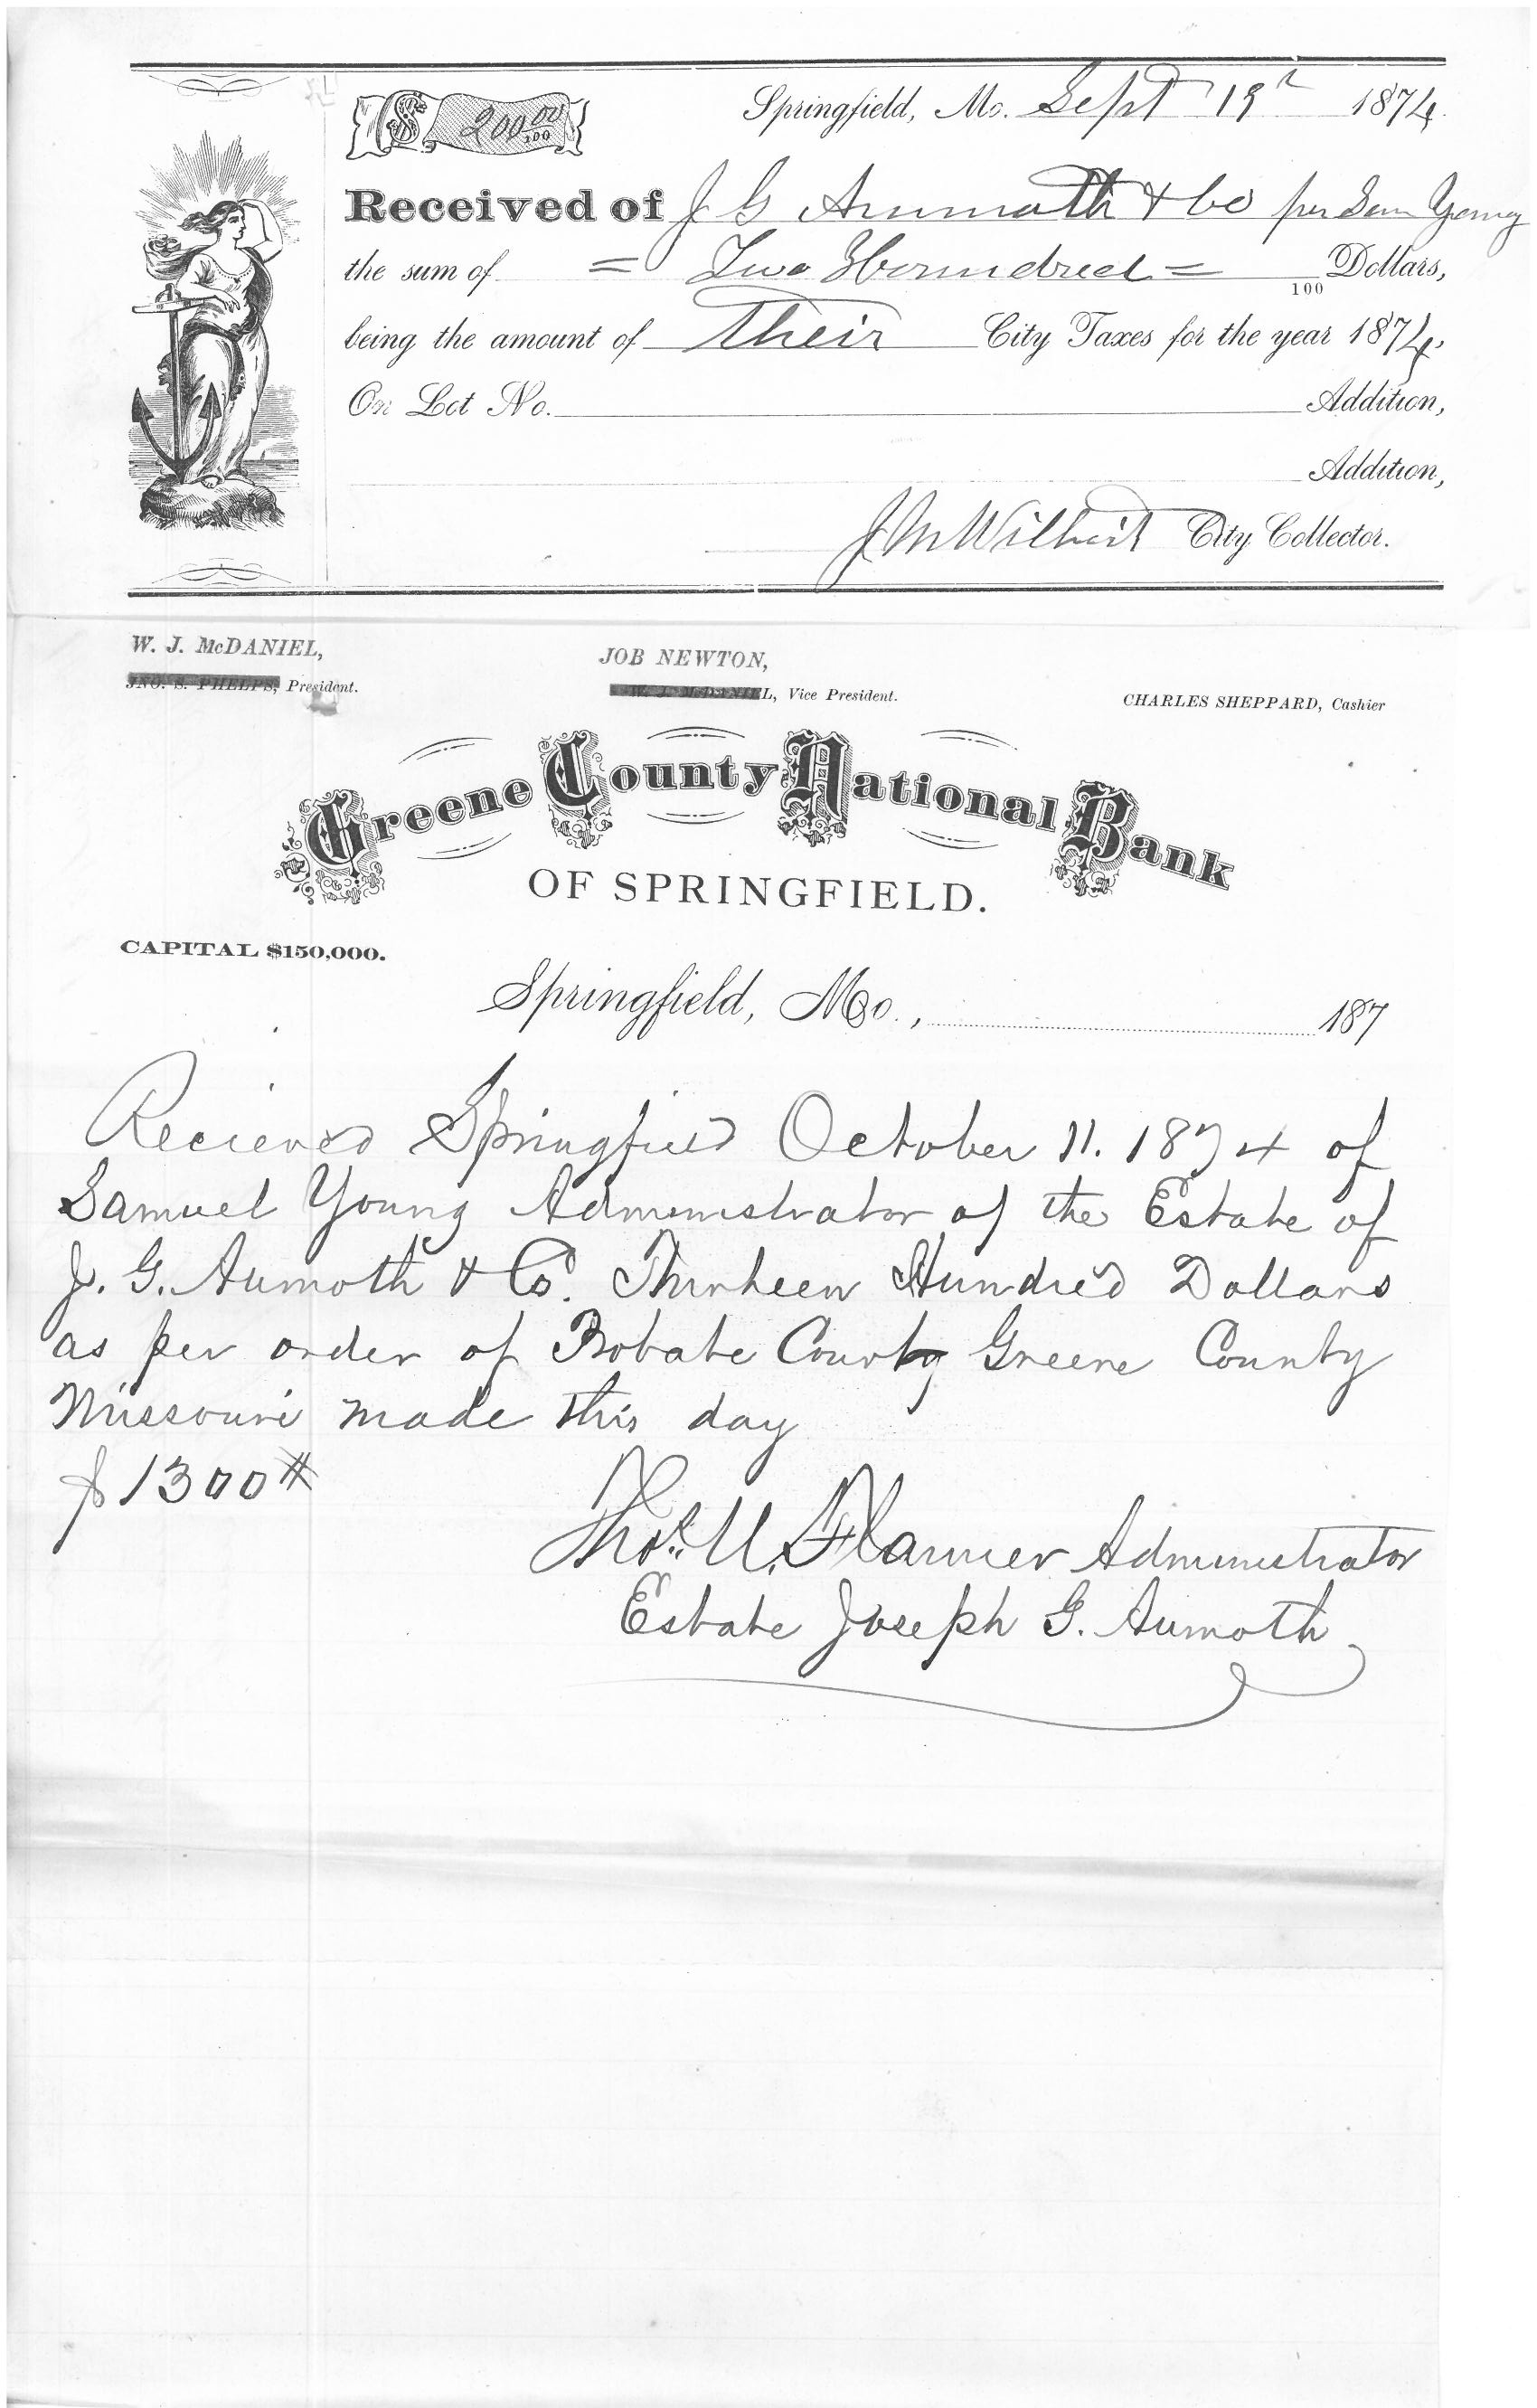 $ 200 00/100
Springfield, Mo. Sept 19th 1874.
Received of J G Aumoth & Co per Sam Young
the sum of = Two Houndred = /100 Dollars,
being the amount of Their City Taxes for the year 1874.
On Lot No. Addition,
Addition,
City Collector.
W. J. McDANIEL,
JNO. S. PHELPS, President.
JOB NEWTON,
W. J. McDANIEL, Vice President.
CHARLES SHEPPARD, Cashier
Greene County National Bank
OF SPRINGFIELD.
CAPITAL $150,000.
Springfield, Mo., 187
Recieved Springfield October 11. 1874 of
Samuel Young Administrator of the Estate of
J. G. Aumoth & Co. Thirteen Hundred Dollars
as per order of Probate Court Greene County
Missouri made this day
$1300#
Thos. U. Flanner Administrator
Estate Joseph G. Aumoth